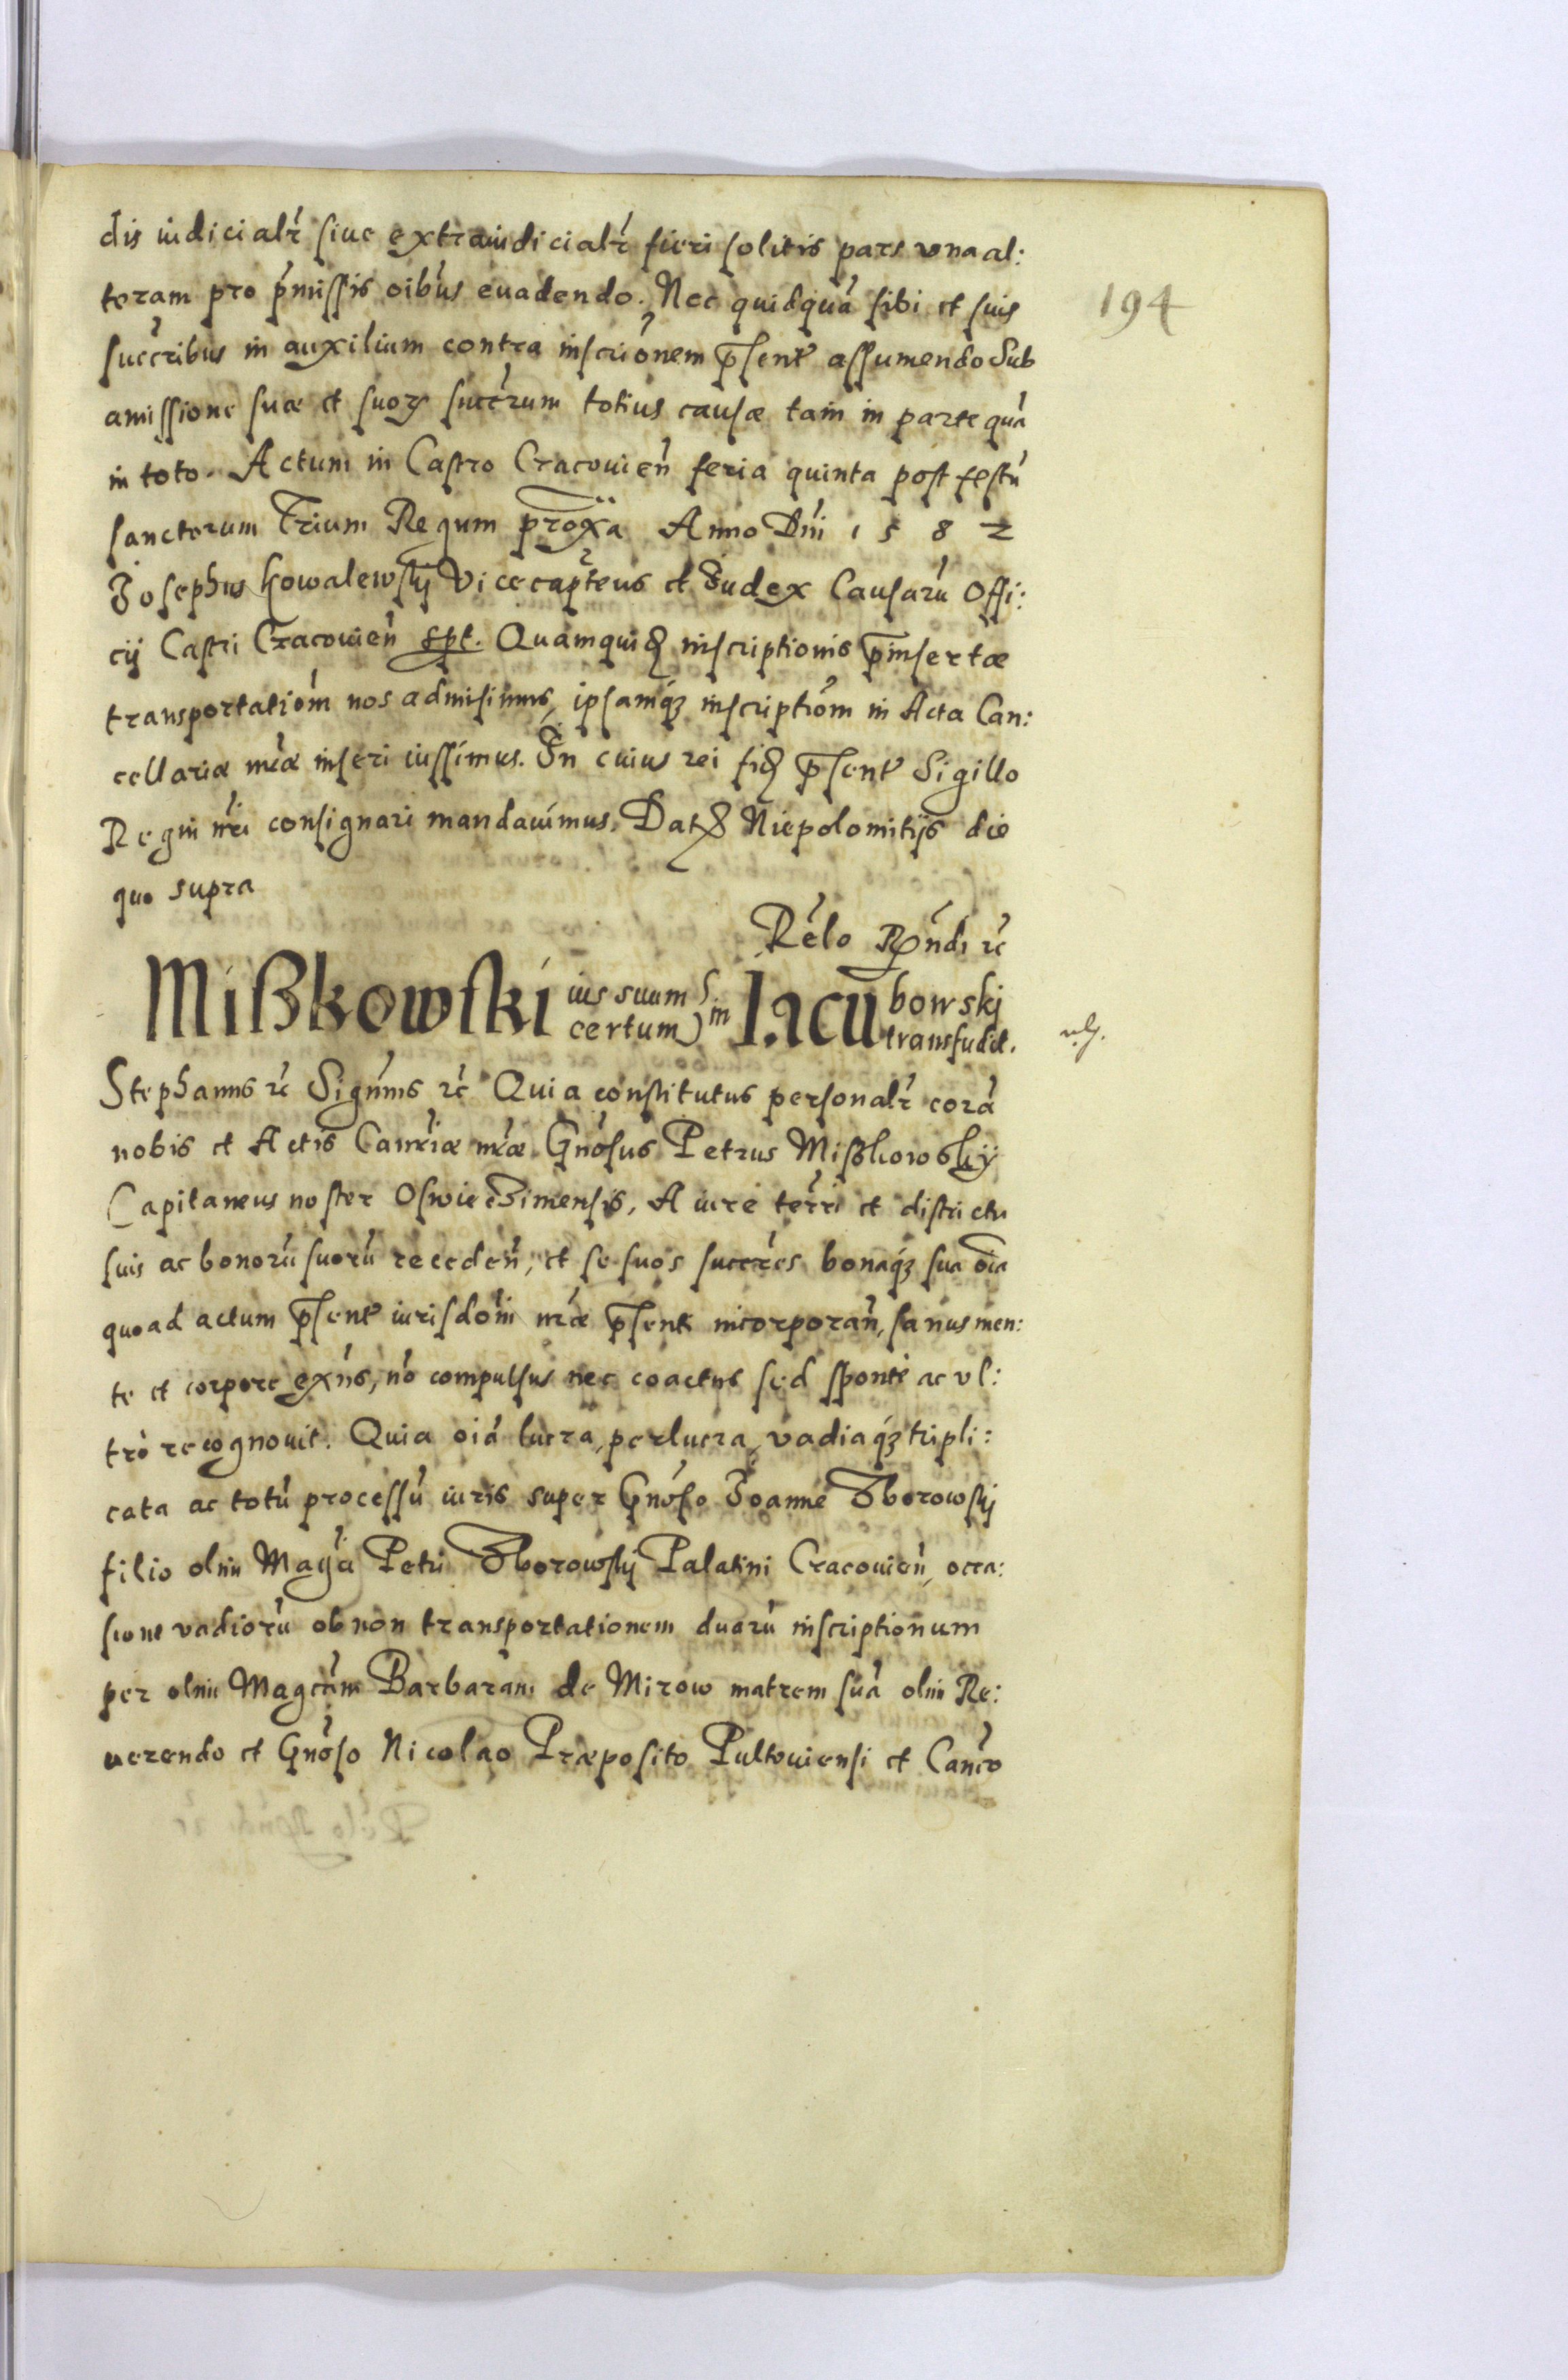 194
dis iudicialr̃ siue extraiudicialr̃ fieri solitis pars vna al:
teram pro p̃missis oib᷒us euadendo. Nec quidquã sibi et suis
succr̃ibus in auxilium contra inscriõnem p̃sent᷒ assumendo Sub
amissione suæ et suoꝝ succr̃um totius causæ tam in parte quã
in toto. Actum in Castro Cracouien̄ feria quinta post festũ
sanctorum Trium Regum prox̃a Anno Dñi 1582
Josephus Kowalewskÿ Vicecapt̃eus et Judex Causarũ Offi:
cij Castri Cracouien̄ spt. Quamquid inscriptionis p̃insertæ
transportatiõm nos admisimus, ipsamqꝫ inscriptiõm in Acta Can:
cellariæ nr̃æ inseri iussimus. In cuius rei fid p̃sent᷒ Sigillo
Regni nr̃i consignari mandauimus. Dat᷒ Niepolomitijs die
quo supra
Rẽlo Rñdi ꝛc̃
Mißkowski ius suum certum in Jacubowskj transfudit.
Stephanus ꝛc̃ Signm̃s ꝛc̃ Quia constitutus personalr̃ corã
nobis et Actis Canc̃riæ nr̃æ Gnõsus Petrus Mißkowskÿ
Capitaneus noster Oswieczimensis, A iure terr̃i et districtu
suis ac bonorũ suorũ receden̄, et se suos succr̃es bonaqꝫ sua oĩa
quo ad actum p̃sent᷒ iurisdoñi nr̃æ p̃senti incorporan̄, sanus men:
te et corpore exñs, nõ compulsus nec coactus sed sponte ac vl:
tro recognouit. Quia oiã lucra, perlucra, vadiaqꝫ tripli:
cata ac totũ processũ iuris super Gnõso Joanne Zborowskÿ
filio olim Magc̃i Petri Zborowskÿ Palatini Cracouien̄, occa:
sione vadiorũ ob non transportationem duarũ inscriptionum
per olim Magc̃am Barbaram de Mirow matrem suã olim Re:
uerendo et Gnõso Nicolao Præposito Pultouiensi et Canc̃o